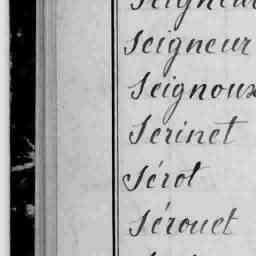 Seigneur
Seigneur
Seignoux
Serinet
Sérot
Sérouet